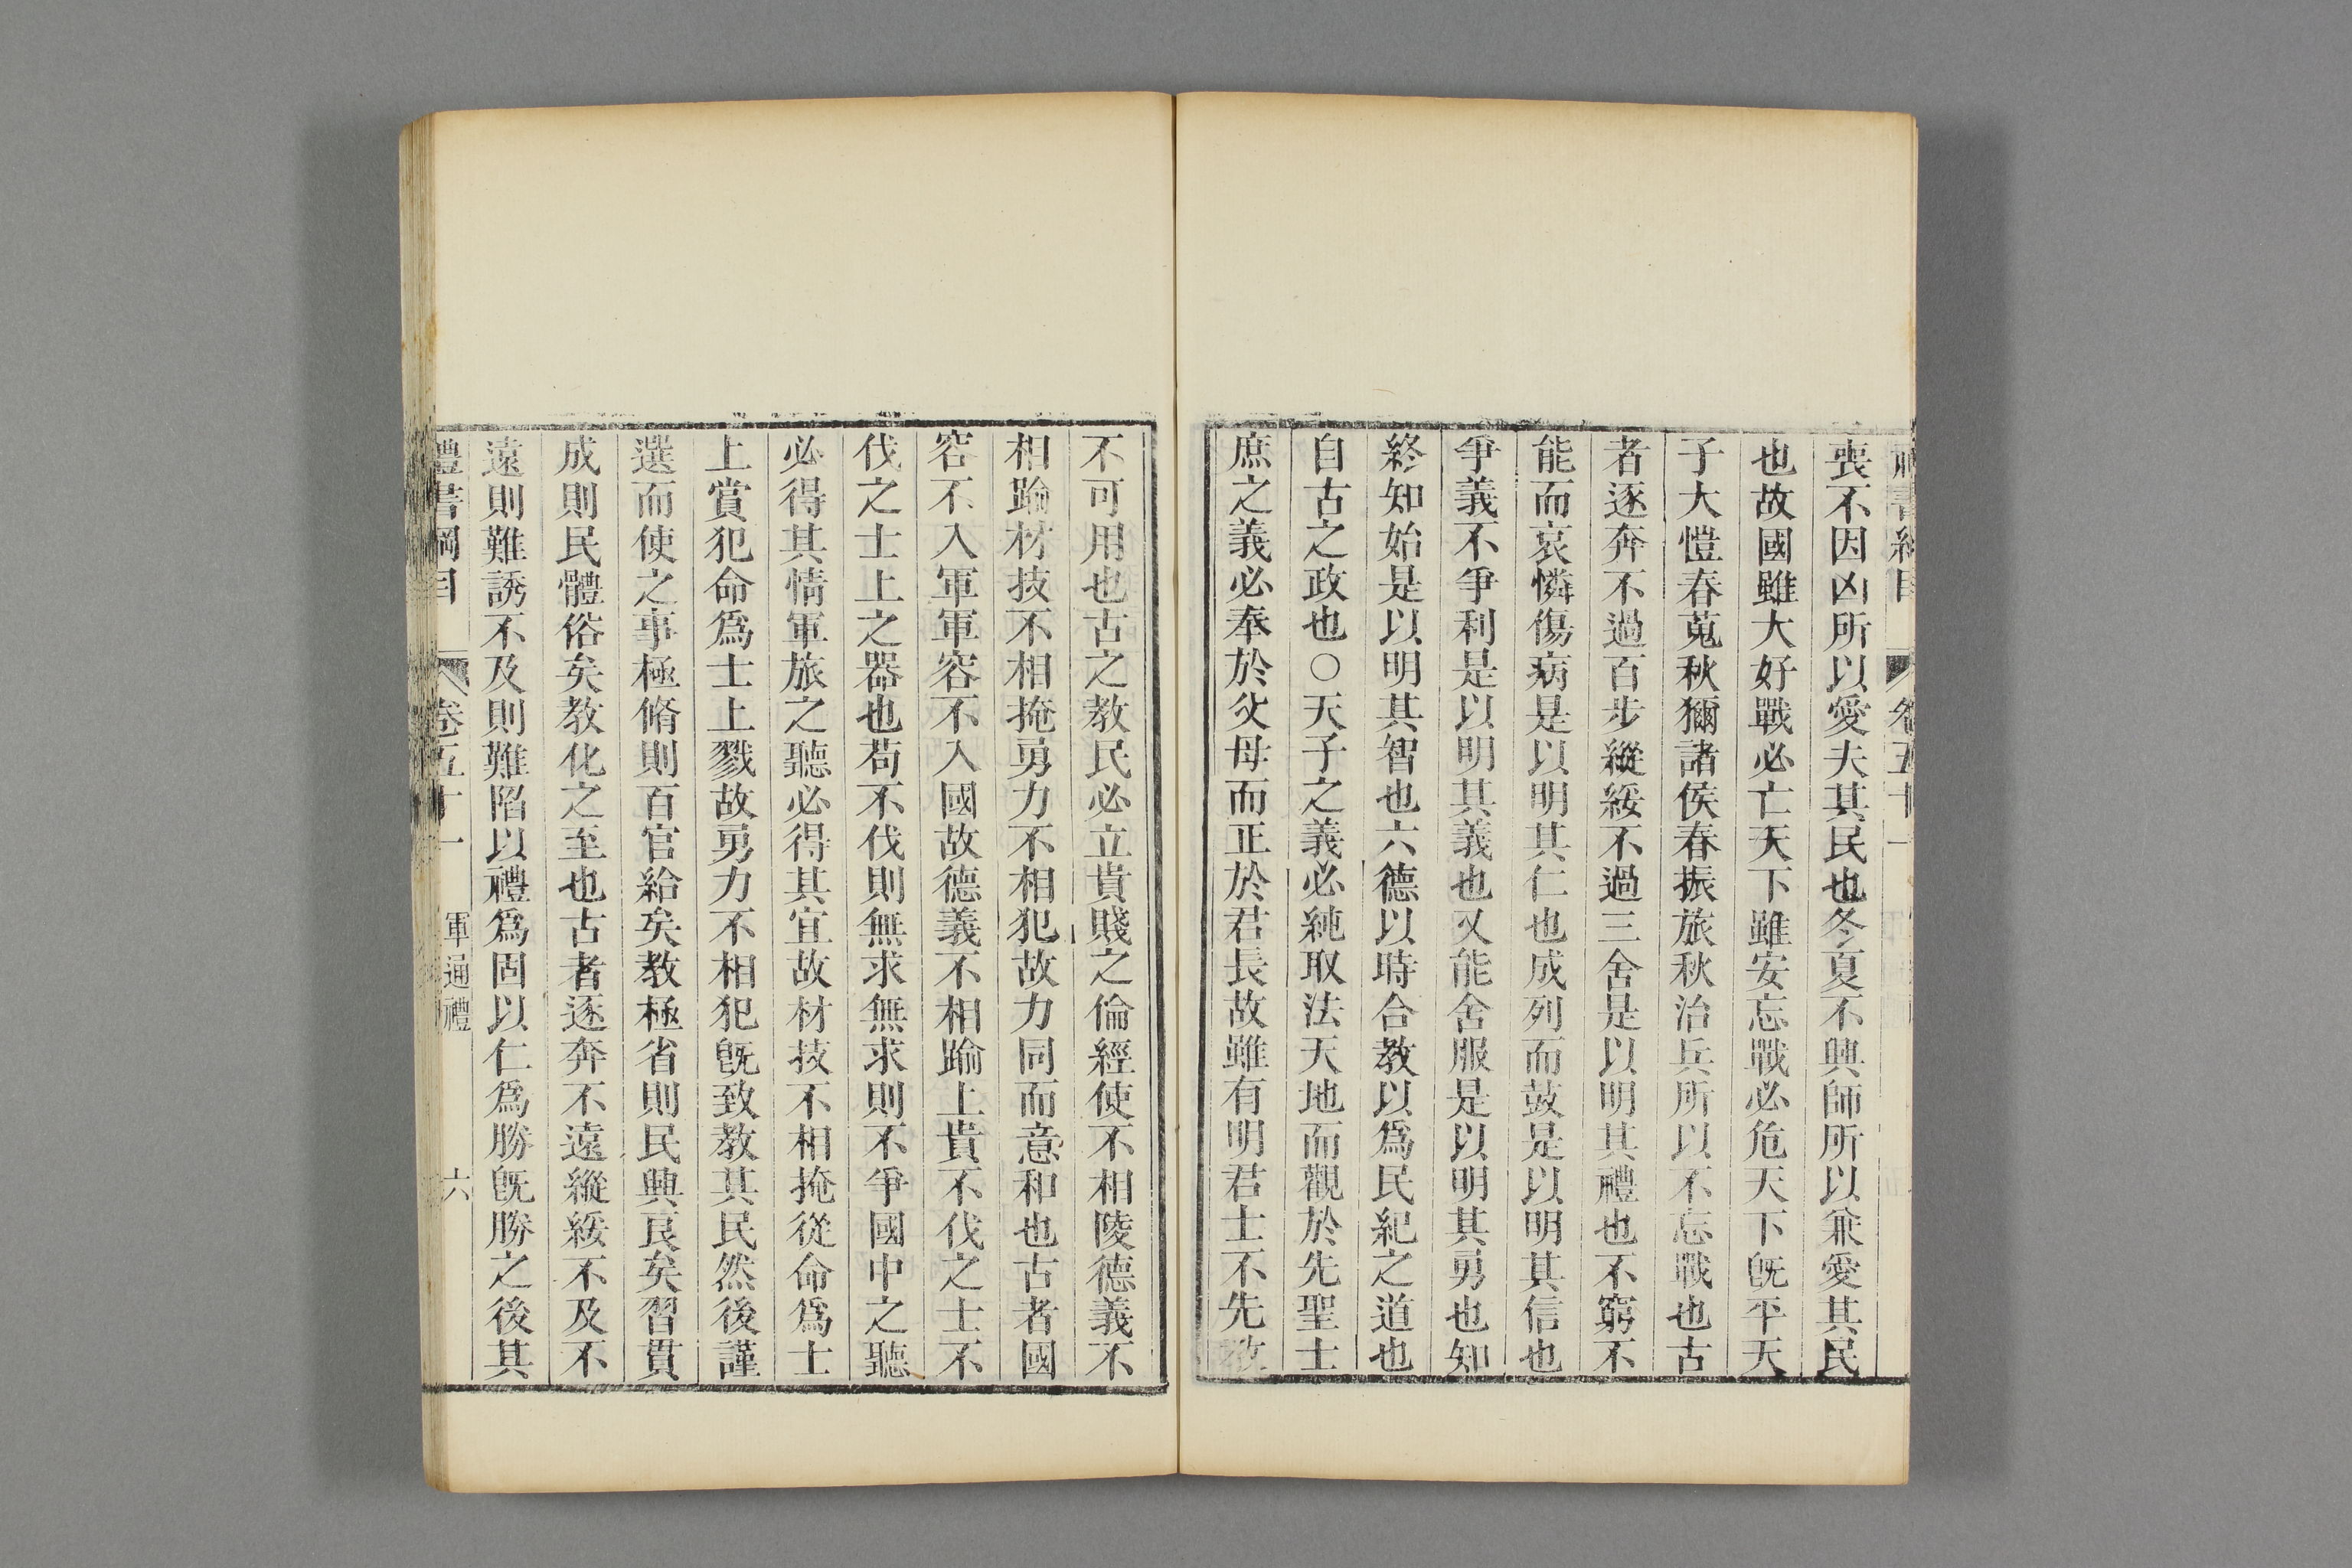 喪不因凶所以愛夫其民也冬夏不興師所以兼愛其民
也故國雖大好戰必亡天下雖安忘戰必危天下旣平天
子大愷春蒐秋獮諸侯春振旅秋治兵所以不忘戰也古
者逐奔不過百步縱綏不過三舍是以明其禮也不窮不
能而哀憐傷病是以明其仁也成列而鼓是以明其信也
爭義不爭利是以明其義也又能舍服是以明其勇也知
終知始是以明其智也六德以時合教以爲民紀之道也
自古之政也○天子之義必純取法天地而觀於先聖士
庶之義必奉於父母而正於君長故雖有明君士不先教
不可用也古之教民必立貴賤之倫經使不相陵德義不
相踰材技不相掩勇力不相犯故力同而意和也古者國
容不入軍軍容不入國故德義不相踰上貴不伐之士不
伐之士上之器也苟不伐則無求無求則不爭國中之聽
必得其情軍旅之聽必得其宜故材技不相掩從命爲士
上賞犯命爲士上戮故勇力不相犯旣致教其民然後謹
選而使之事極脩則百官給矣教極省則民興良矣習貫
成則民體俗矣教化之至也古者逐奔不遠縱綏不及不
遠則難誘不及則難陷以禮爲固以仁爲勝旣勝之後其
禮書綱目 卷五十一 軍通禮 六